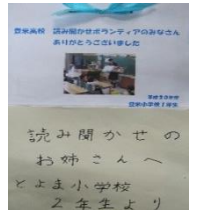 登米高校 読み聞かせボランティアのみなさん
ありがとうございました
登米小学校2年生
読み聞かせの
お姉さんへ
とよま小学校
2年生より